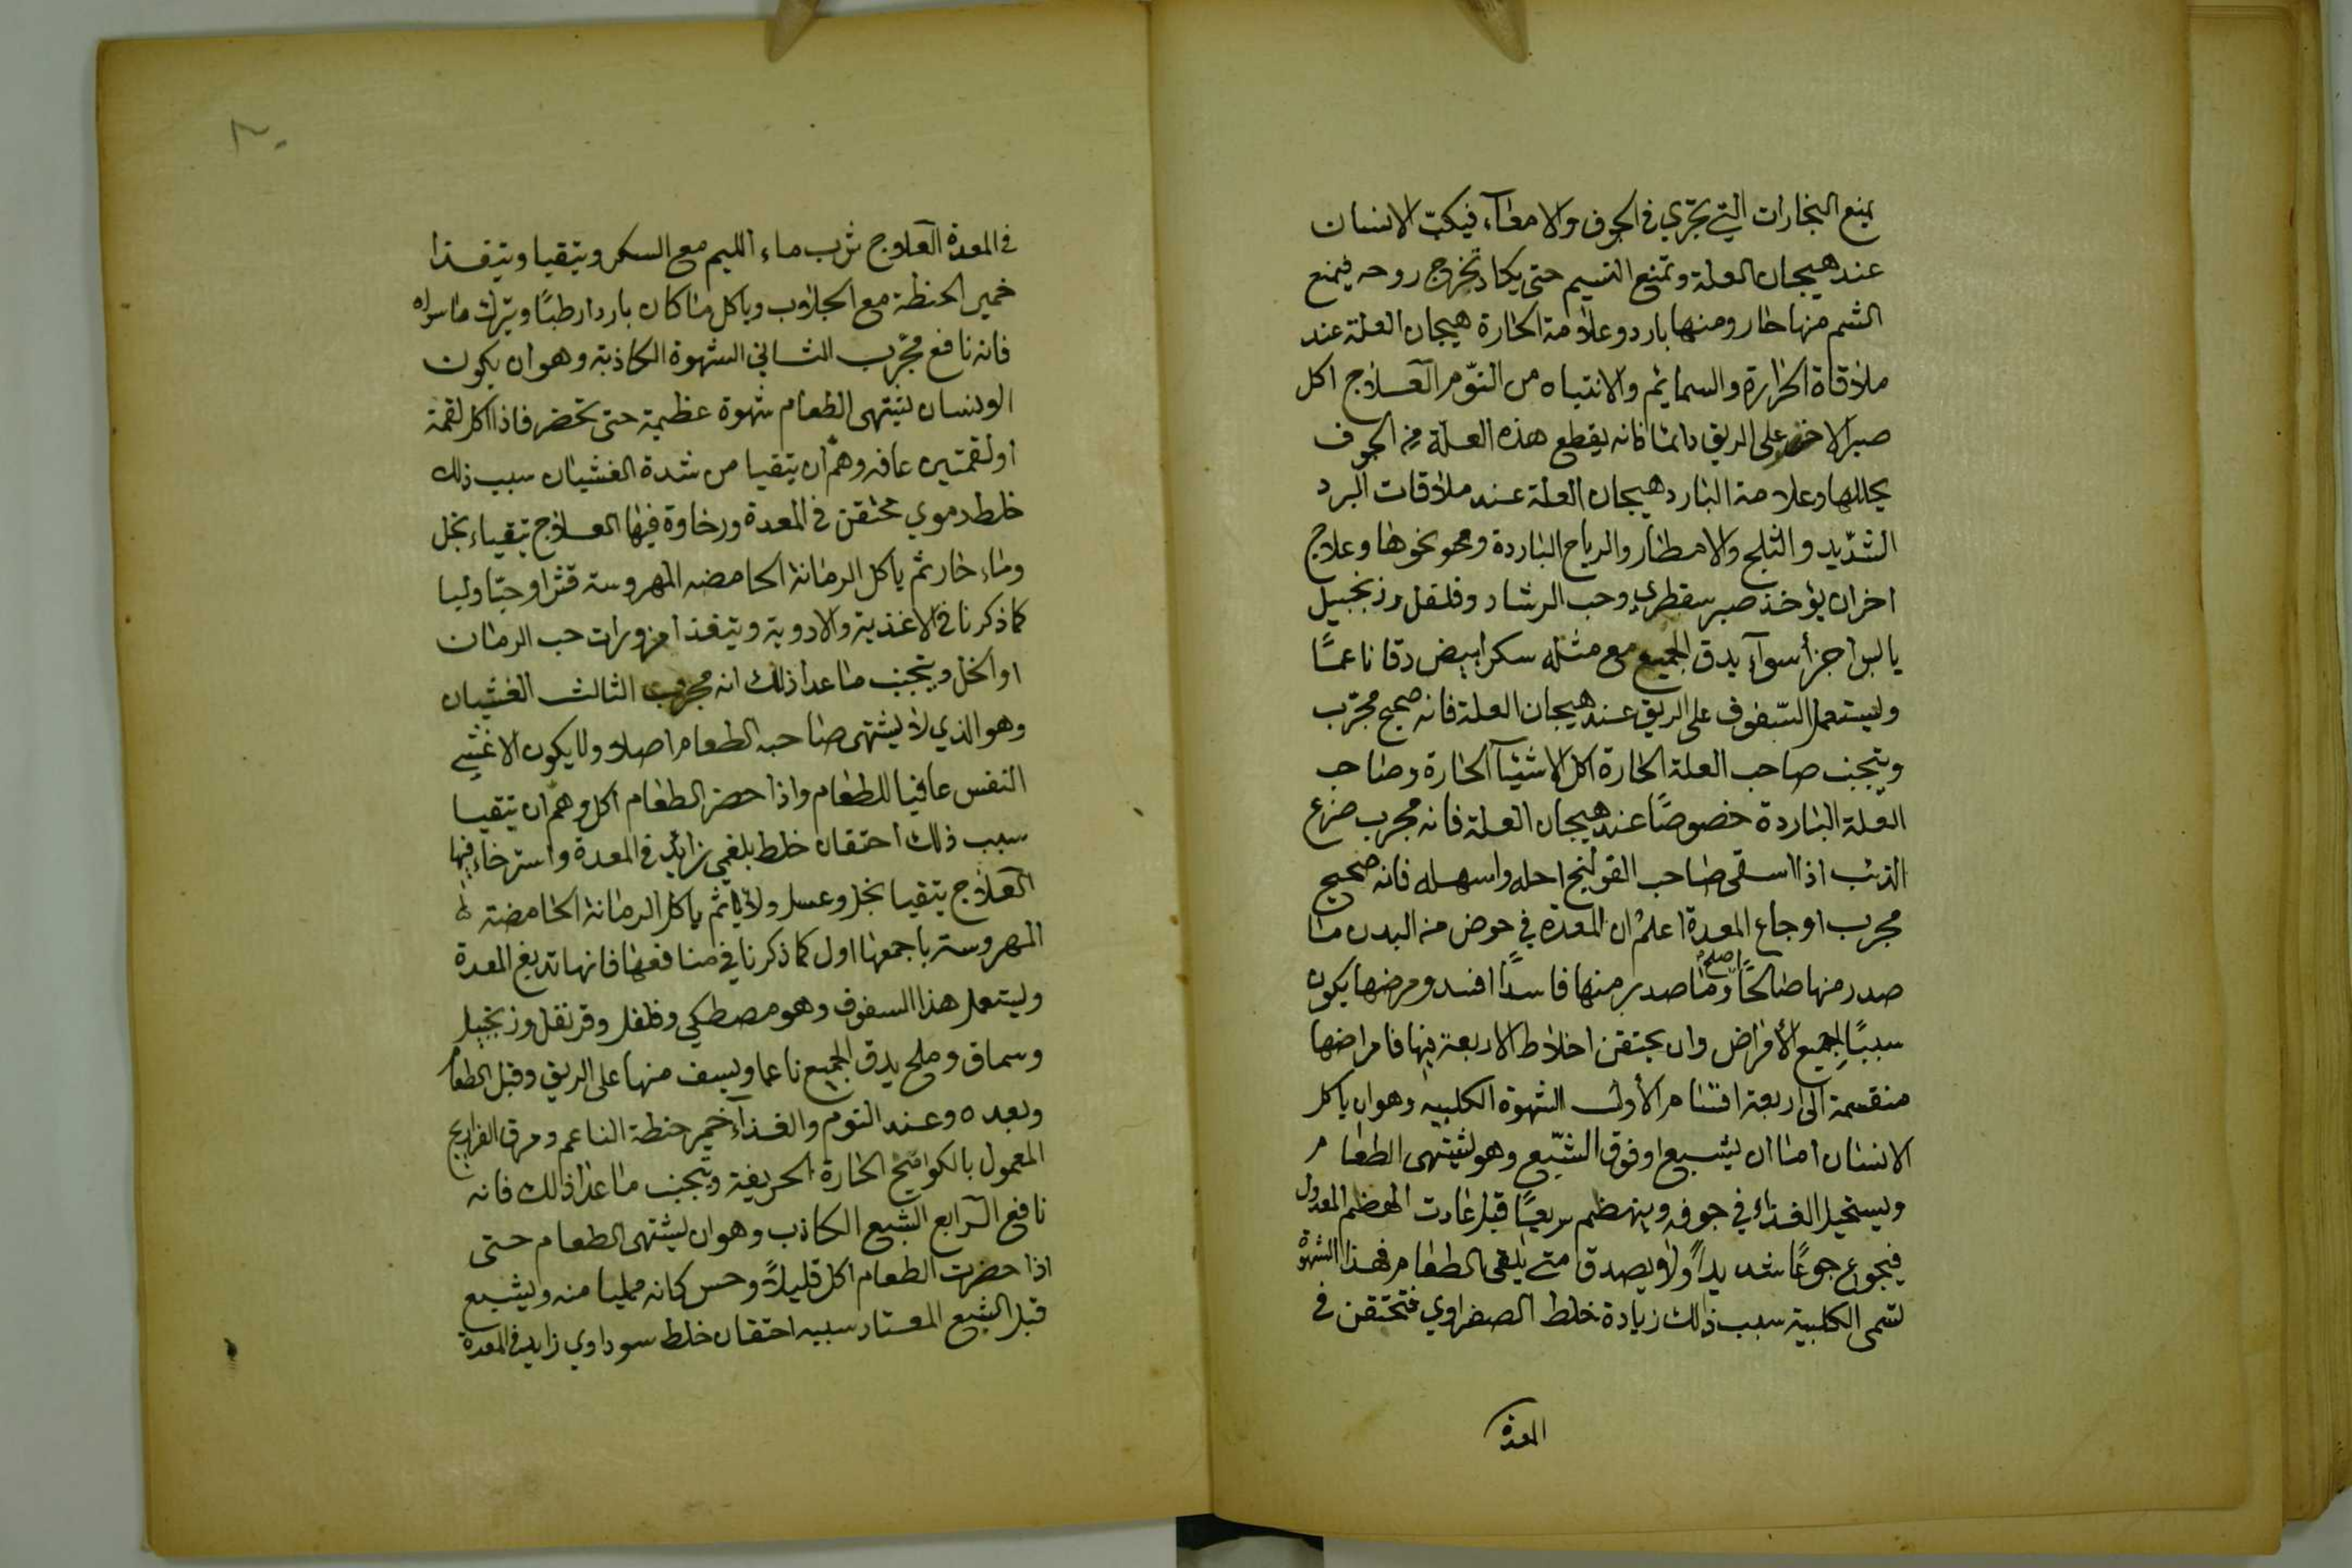 يمنع البخارات التي تجري في الجوف والامعاء، فيكبّ الانسان
عند هيجان العلة وتمنع النسيم حتى يكاد تخرج روحه فيمنع
الشم منها حار ومنها بارد وعلامة الحارة هيجان العلة عند
ملاقاة الحرارة والسمايم والانتباه من النوّم العلاج اكل
صبر الاخضر على الريق دائما فانه يقطع هذه العلة من الجوف
يحللها وعلامة البارد هيجان العلة عند ملاقات البرد
الشدّيد والثلج والامطار والرياح الباردة ونحو نحوها وعلاج
اخران يؤخذ صبر سقطري وحب الرشاد وفلفل وزنجبيل
يابس اجزأ سوآء يدق الجميع مع مثله سكر ابيض دقا ناعمًا
وليستعمل السّفوف على الريق عند هيجان العلة فانه صحيح مجرّب
ويتجنب صاحب العلة الحارة اكل الاشيآ الحارة وصاحب
العلة الباردة خصوصًا عند هيجان العلة فانه مجرب ضرع
الذئب اذا اسقى صاحب القولنج احله واسهله فانه صحيح
مجرب اوجاع المعدة اعلم ان المعدة في حوض منه البدن ما
صدر منها صالحًا اصلح وما صدر منها فاسدًا افسد ومرضها يكون
سببًا لجميع الأمراض وان يحتقن اخلاط الاربعة فيها فامراضها
منقسمة الى اربعة اقسام الأول الشهوة الكلبيه وهو ان ياكل
الانسان اما ان يشبع او فوق الشّبع وهو يشتهى الطعام
ويستحيل الغذاء في جوفه وينهضم سريعًا قبل عادت الهضم المعدول
فيجوع جوعًا شديداً ولا يصدق متى يلقى الطعام فهذا الشهوة
تسمى الكلبية سبب ذالك زيادة خلط الصفراوي فتحتقن في
المعدة
في المعدة العلاج شرب ماء الليم مع السكر ويتقيا ويتغذا
خمير الحنطة مع الجلاب وياكل ما كان باردا رطبًا ويترك ما سواه
فانه نافع مجرّب الثاني الشهوة الكاذبة وهو ان يكون
الانسان يشتهى الطعام شهوة عظيمة حتى تحضر فاذا اكل لقمة
او لقمتين عافه وهمّ ان يتقيا من شدة الغشيان سبب ذلك
خلط دموي محتقن في المعدة ورخاوة فيها العلاج يتقياء بخل
وماء حار ثم ياكل الرمانة الحامضه المهروسة قشرا وحبّا ولبا
كما ذكرنا في الاغذية والادوية ويتغذا مزورات حب الرمان
او الخل ويتجنب ما عدا ذلك انه مجرب الثالث الغشيان
وهو الذي لا يشتهى صاحبه الطعام اصلا ولا يكون الا غشى
النفس عافيا للطعام واذا حضر الطعام اكل وهمّ ان يتقيا
سبب ذلك احتقان خلط بلغمي زائد في المعدة واسترخاء فيها
العلاج يتقيا بخل وعسل ثم ياكل الرمانة الحامضة
المهروسة باجمعها اول كما ذكرنا في منافعها فانها تدبغ المعدة
وليتعمل هذا السفوف وهو مصطكي وفلفل وقرنفل وزنجبيل
وسماق وملح يدق الجميع ناعما ويسف منها على الريق وقبل الطعام
وبعده وعند النوم والغذآء خمير حنطة الناعم ومرق الفراريج
المعمول بالكوامخ الحارة الحريفة ويتجنب ما عدا ذالك فانه
نافع الرابع الشبع الكاذب وهو ان يشتهى الطعام حتى
اذا حضرت الطعام اكل قليلاً وحس كانه ممليا منه ويشبع
قبل الشبع المعتاد سببه احتقان خلط سوداوي زايد في المعدة